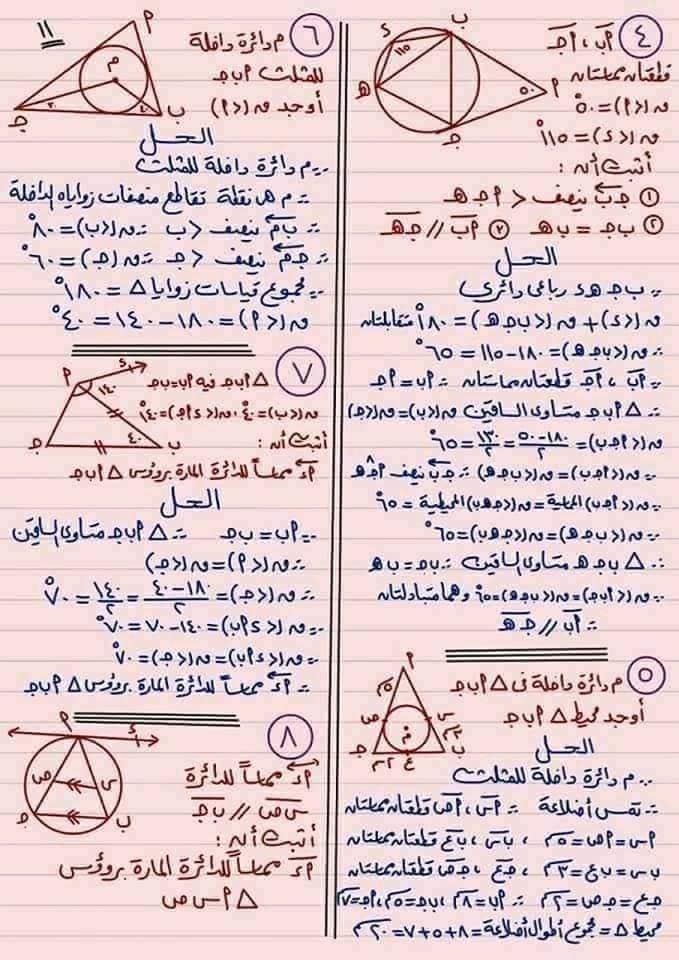 ١١
٤ أب ، أجـ
قطعتان مماستان
ق(<أ)=٥٠°
ق(<د)=١١٠°
أثبت أن :
① جب ينصف <أجـهـ
② بجـ=بهـ ③ أب//جـهـ
الحل
∵ بجـهـد رباعى دائرى
ق(<د)+ق(<بجـهـ)=١٨٠° متقابلتان
∴ق(<بجـهـ)=١٨٠-١١٠=٧٠°
∵ أب ، أجـ قطعتان مماستان ∴ أب=أجـ
∴ △أبجـ متساوى الساقين ق(<ب)=ق(<جـ)
ق(<أجب)=١٨٠-٥٠/٢=١٣٠/٢=٦٥°
∴ق(<أجب)=ق(<بجـهـ) ∴جب ينصف أجـهـ
∵ق(<أجب)المماسية=ق(<جـهـب)المحيطية=٦٥°
∴ق(<بجـهـ)=ق(<جـهـب)=٦٥°
∴ △بجـهـ متساوى الساقين ∴بجـ=بهـ
∵ق(<أبجـ)=ق(<بجـهـ)=٦٥° وهما متبادلتان
∴ أب//جـهـ
٥ م دائرة داخلة فى △أبجـ
أوجد محيط △أبجـ
الحل
∵ م دائرة داخلة للمثلث
∴ تمس أضلاعة ∴ أس ، أص قطعتان مماستان
أس=أص=٥سم ، بس ، بع قطعتان مماستان
بس=بع=٣سم ، جع ، جص قطعتان مماستان
جع=جص=٢سم ∴ أب=٨سم ، بجـ=٥سم ، أجـ=٧سم
محيط △=مجموع أطوال أضلاعة=٨+٥+٧=٢٠سم
٦ م دائرة داخلة
للمثلث أبجـ
أوجد ق(<أ)
الحل
∵ م دائرة داخلة للمثلث
∴ م هى نقطة تقاطع منصفات زواياه الداخلة
∴ بم ينصف <ب ∴ق(<ب)=٨٠°
∴ جم ينصف <جـ ∴ق(<جـ)=٦٠°
∵ مجموع قياسات زوايا △=١٨٠°
ق(<أ)=١٨٠-١٤٠=٤٠°
٧ △أبجـ فيه أب=بجـ
ق(<ب)=٤٠°،ق(<دأجـ)=١٤٠°
أثبت أن :
أد مماساً للدائرة المارة برؤوس △أبجـ
الحل
∵أب=بجـ ∴ △أبجـ متساوى الساقين
∴ق(<أ)=ق(<جـ)
∴ق(<جـ)=١٨٠-٤٠/٢=١٤٠/٢=٧٠°
∵ق(<دأب)=١٤٠-٧٠=٧٠°
∴ق(<دأب)=ق(<جـ)=٧٠°
∴ أد مماساً للدائرة المارة برؤوس △أبجـ
٨
أد مماساً للدائرة
سص // بجـ
أثبت أن :
أد مماساً للدائرة المارة برؤوس
△أسص